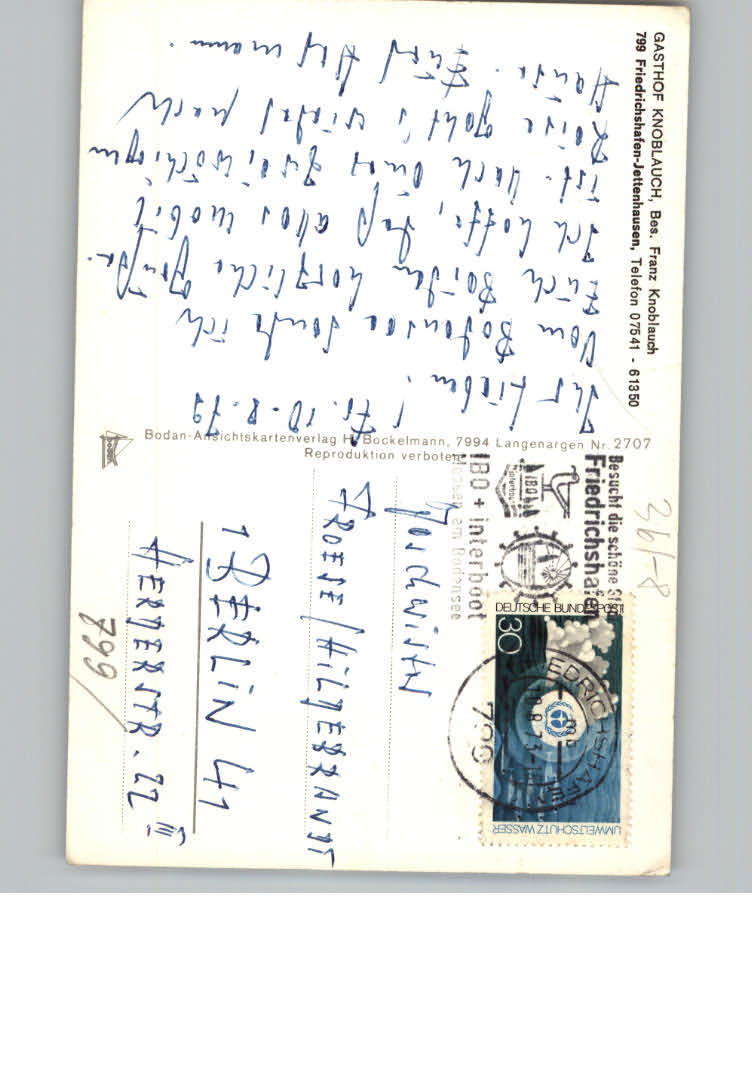 GASTHOF KNOBLAUCH, Bes. Franz Knoblauch
799 Friedrichshafen-Jettenhausen, Telefon 07541 - 61350
Fr. 10.8.73
Ihr Lieben!
Vom Bodensee sende ich
Euch Beiden herzliche Grüße.
Ich hoffe, daß alles mobil
ist. Nach einer zweiwöchigen
Reise geht's wieder nach
Hause. Euer Hermann.
Bodan-Ansichtskartenverlag H. Bockelmann, 7994 Langenargen Nr. 2707
Reproduktion verboten
BODAN
Besucht die schöne Stadt
Friedrichshafen
IBO
interboot
IBO + interboot
Messen am Bodensee
DEUTSCHE BUNDESPOST
30
UMWELTSCHUTZ WASSER
FRIEDRICHSHAFEN
10.8.73
799
Geschwister
FROESE/HILDEBRANDT
1 BERLIN 41
HERDERSTR. 22
III
799/
36/-8